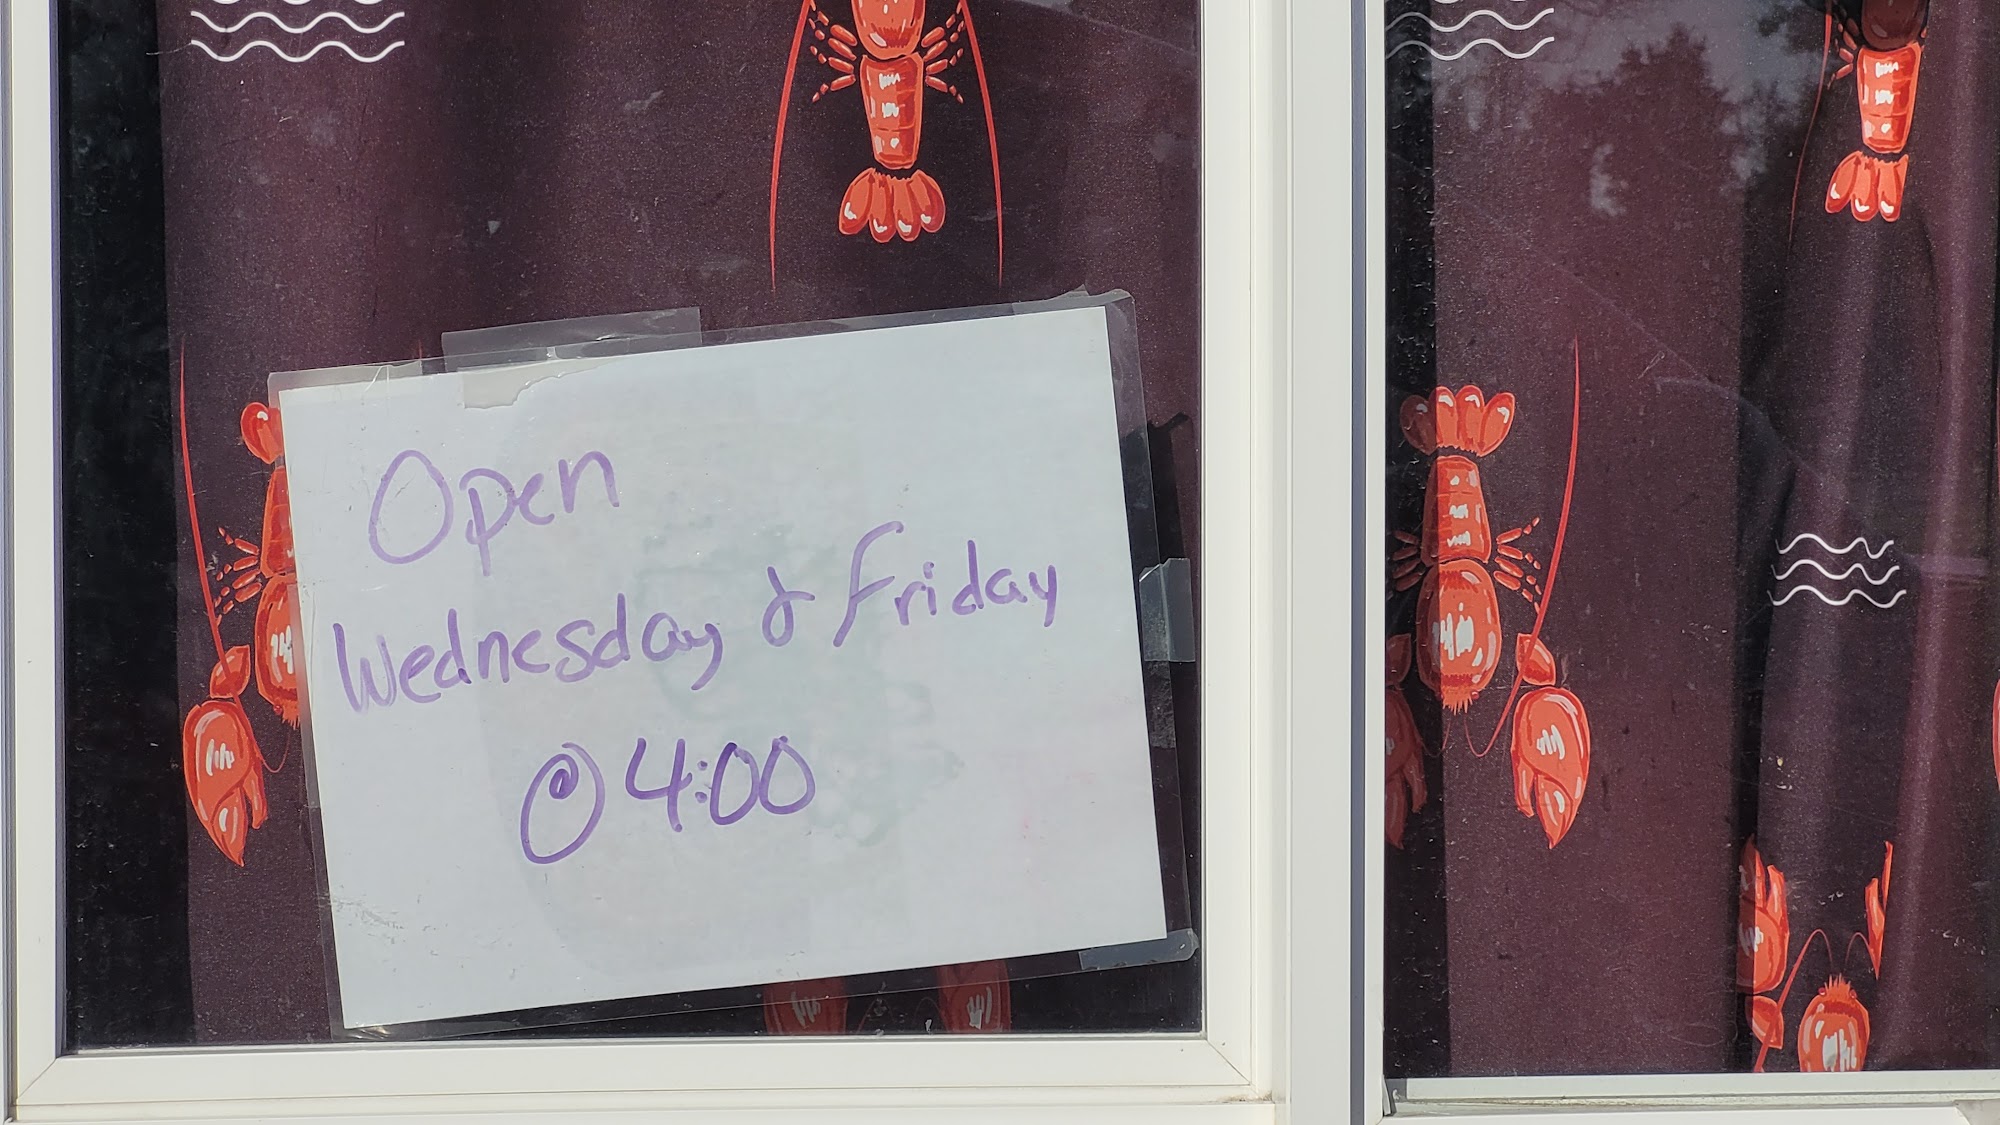 Open
Wednesday & Friday
@ 4:00